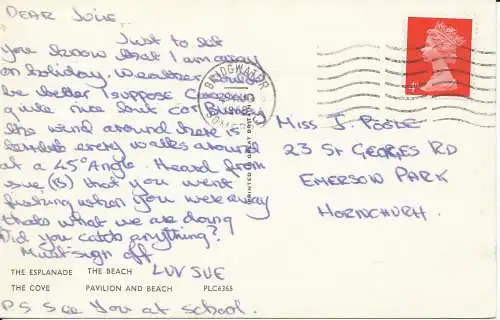 DEAR JULIE,
Just to let
you know that I am away
on holiday. Weather could
be better I suppose
quite nice but cor Blimey
the wind around here is
everybody walks around
at a 45° Angle. Heard from
sue, (B) that you went
fishing when you were away
thats what we are doing
Did you catch anything?
Must sign off
LUV SUE
P.S See You at school.
THE ESPLANADE THE BEACH
THE COVE PAVILION AND BEACH PLC6365
PRINTED IN GREAT BRITAIN
BRIDGWATER
4d
MISS J. POOLE
23 ST GEORGES RD
EMERSON PARK
HORNCHURH.